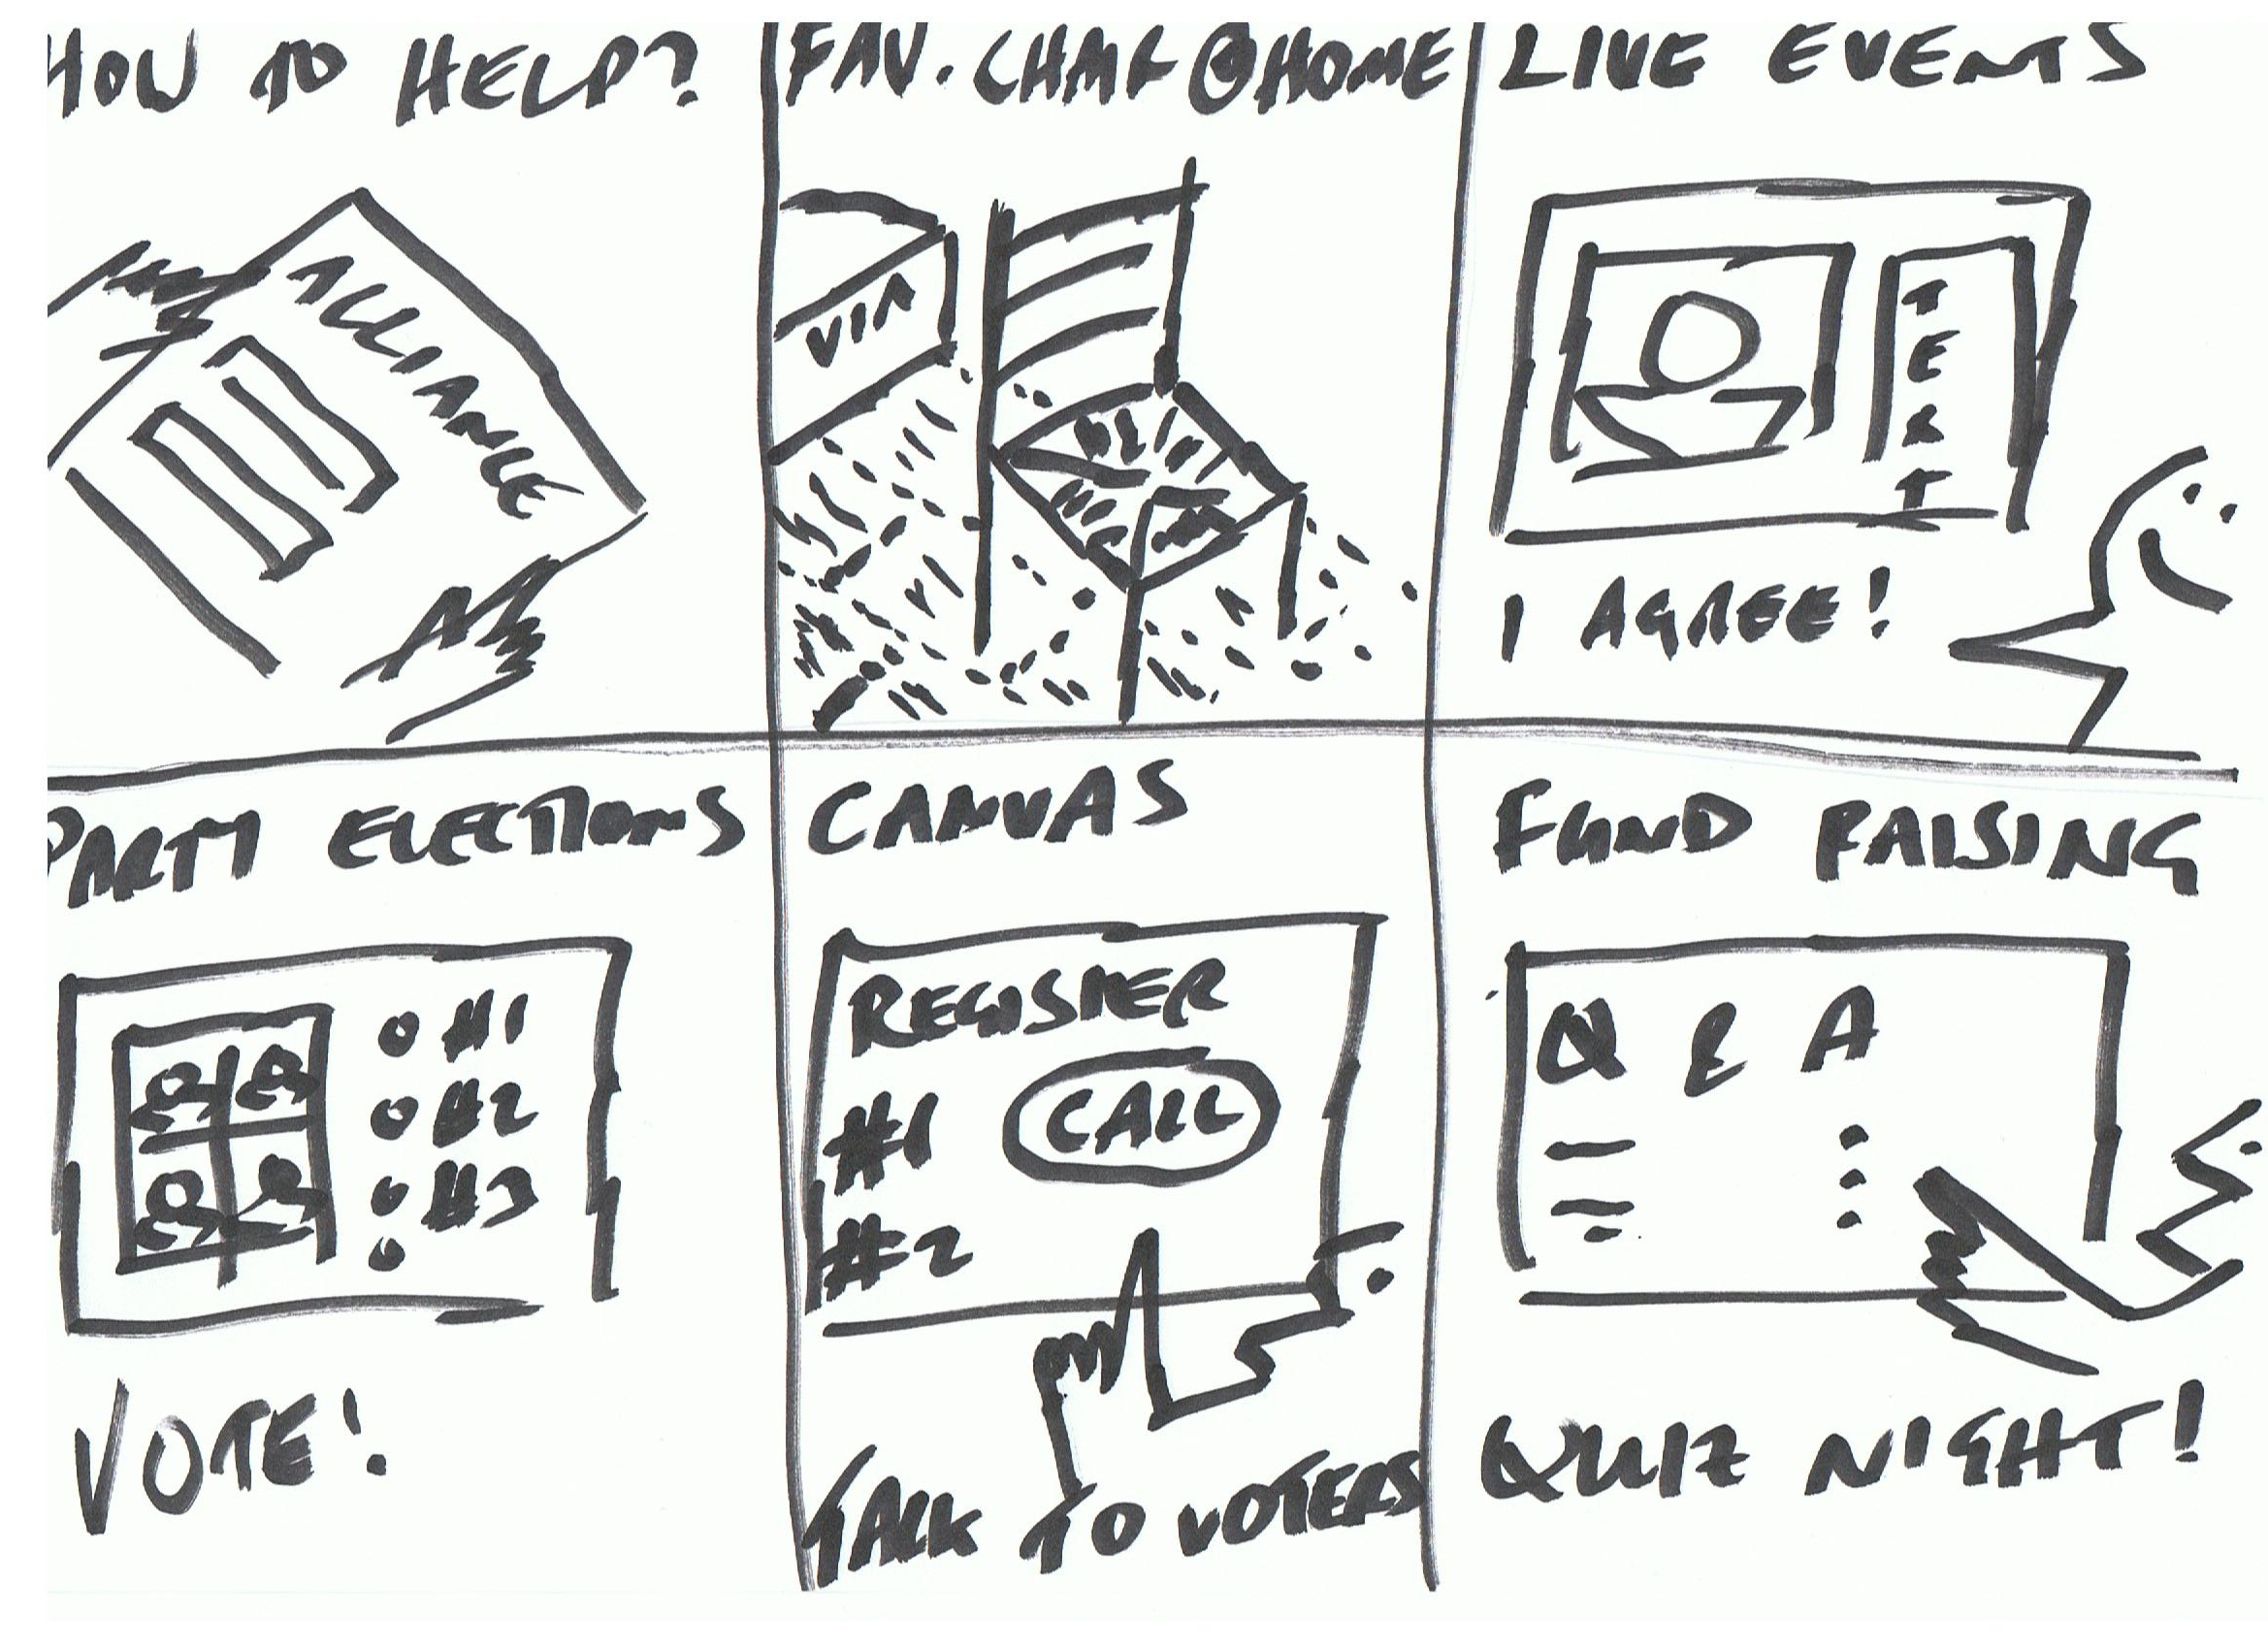 HOW TO HELP?
ALLIANCE
FAV. CHAIR @HOME
LIVE EVENTS
TEXT
I AGREE!
PARTY ELECTIONS
#1
#2
#3
VOTE!
CANVAS
REGISTER
#1 CALL
#2
TALK TO VOTERS
FUND RAISING
Q & A
QUIZ NIGHT!